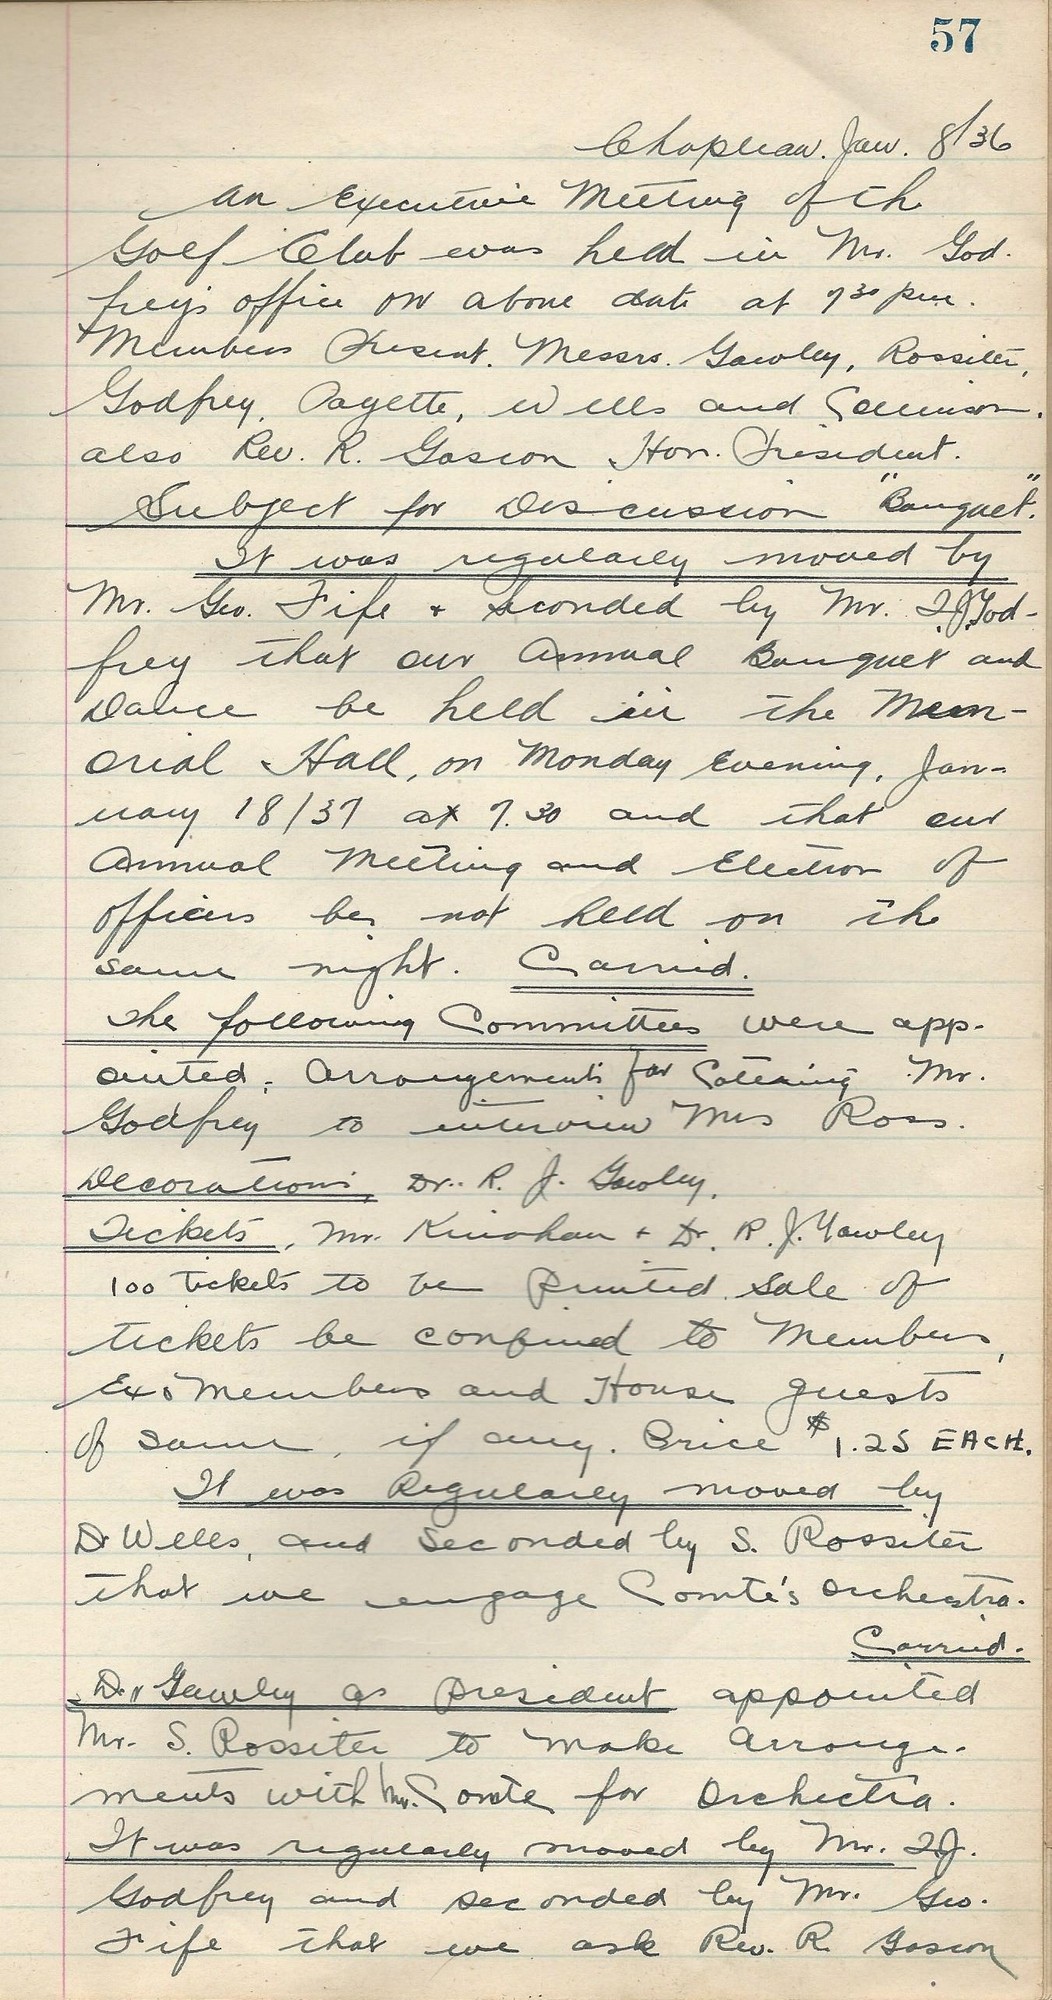 57
Chapleau. Jan. 8/36
An Executive Meeting of th
Golf Club was held in Mr. God-
frey's office on above date at 7 30 pm.
Members Present. Messrs. Gawley, Rossiter,
Godfrey, Payette, Wells and
also Rev. R. Gascon Hon. President.
Subject for Discussion "Banquet".
It was regularly moved by
Mr. Geo. Fife + Seconded by Mr. T.J. God-
frey that our Annual Banquet and
Dance be held in the Mem-
orial Hall, on Monday Evening, Jan-
uary 18/37 at 7.30 and that our
Annual Meeting and Election of
officers be not held on the
same night. Carried.
The following Committees were app-
ointed. Arrangements for Catering Mr.
Godfrey to interview Mrs Ross.
Decorations, Dr. R. J. Gawley.
Tickets, Mr. Kinahan + Dr. R. J. Gawley
100 Tickets to be Printed. Sale of
tickets be confined to Members,
Ex-Members and House guests
of same, if any. Price $1.25 EACH.
It was Regularly moved by
Dr Wells, and Seconded by S. Rossiter
that we engage Comte's Orchestra.
Carried.
Dr. Gawley as President appointed
Mr. S. Rossiter to make Arrange-
ments with Mr. Comte for Orchestra.
It was regularly moved by Mr. T.J.
Godfrey and seconded by Mr. Geo.
Fife that we ask Rev. R. Gascon